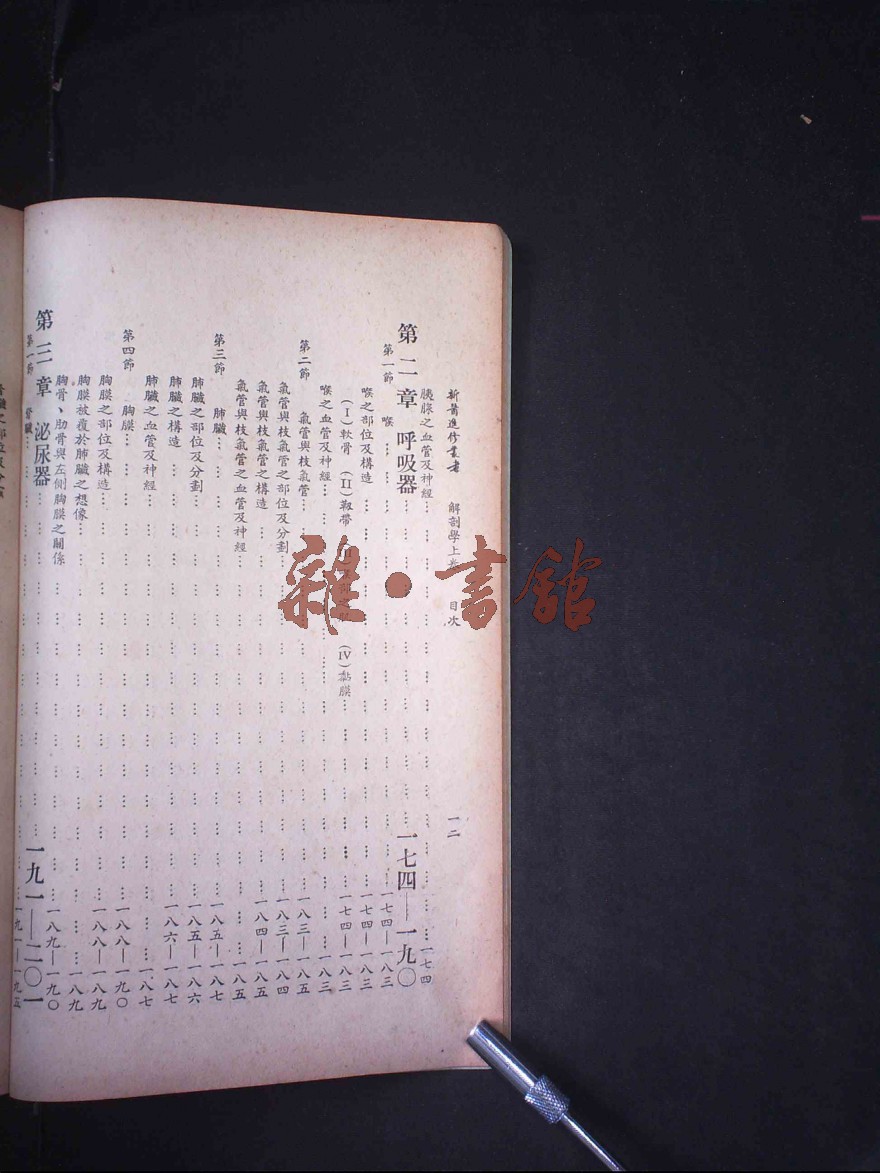 新醫進修叢書 解剖學上卷 目次 一二
胰腺之血管及神經……一七四
第二章 呼吸器……一七四—一九〇
第一節 喉……一七四—一八三
喉之部位及構造……一七四—一八三
(I)軟骨 (II)靱帶 (IV)黏膜……一七四—一八三
喉之血管及神經……一八三
第二節 氣管與枝氣管……一八三—一八五
氣管與枝氣管之部位及分劃……一八三—一八四
氣管與枝氣管之構造……一八四—一八五
氣管與枝氣管之血管及神經……一八五
第三節 肺臟……一八五—一八七
肺臟之部位及分劃……一八五—一八六
肺臟之構造……一八六—一八七
肺臟之血管及神經……一八七
第四節 胸膜……一八八—一九〇
胸膜之部位及構造……一八八—一八九
胸膜被覆於肺臟之想像……一八九
胸骨、肋骨與左側胸膜之關係……一八九—一九〇
第三章 泌尿器……一九一—二〇一
第一節 腎臟……一九一—一九五
雜·書館